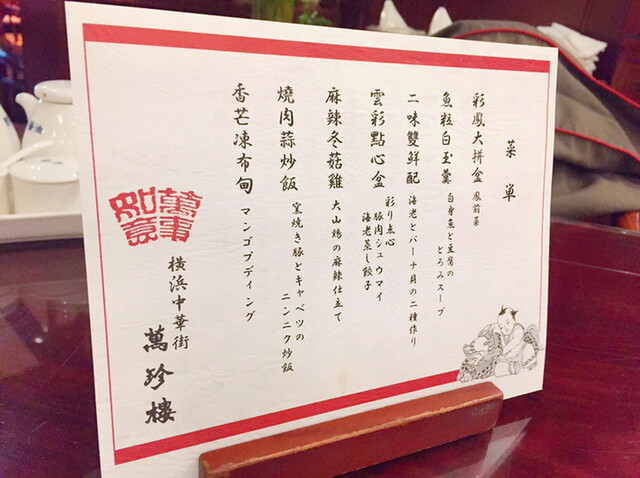 菜単
彩鳳大拼盆 鳳前菜
魚粒白玉羹 白身魚と豆腐の
とろみスープ
二味雙鮮配 海老とパーナ貝の二種作り
雲彩點心盒 彩り点心
豚肉シュウマイ
海老蒸し餃子
麻辣冬菇雞 大山鶏の麻辣仕立て
燒肉蒜炒飯 窯焼き豚とキャベツの
ニンニク炒飯
香芒凍布甸 マンゴプディング
萬事
如意
横浜中華街
萬珍樓